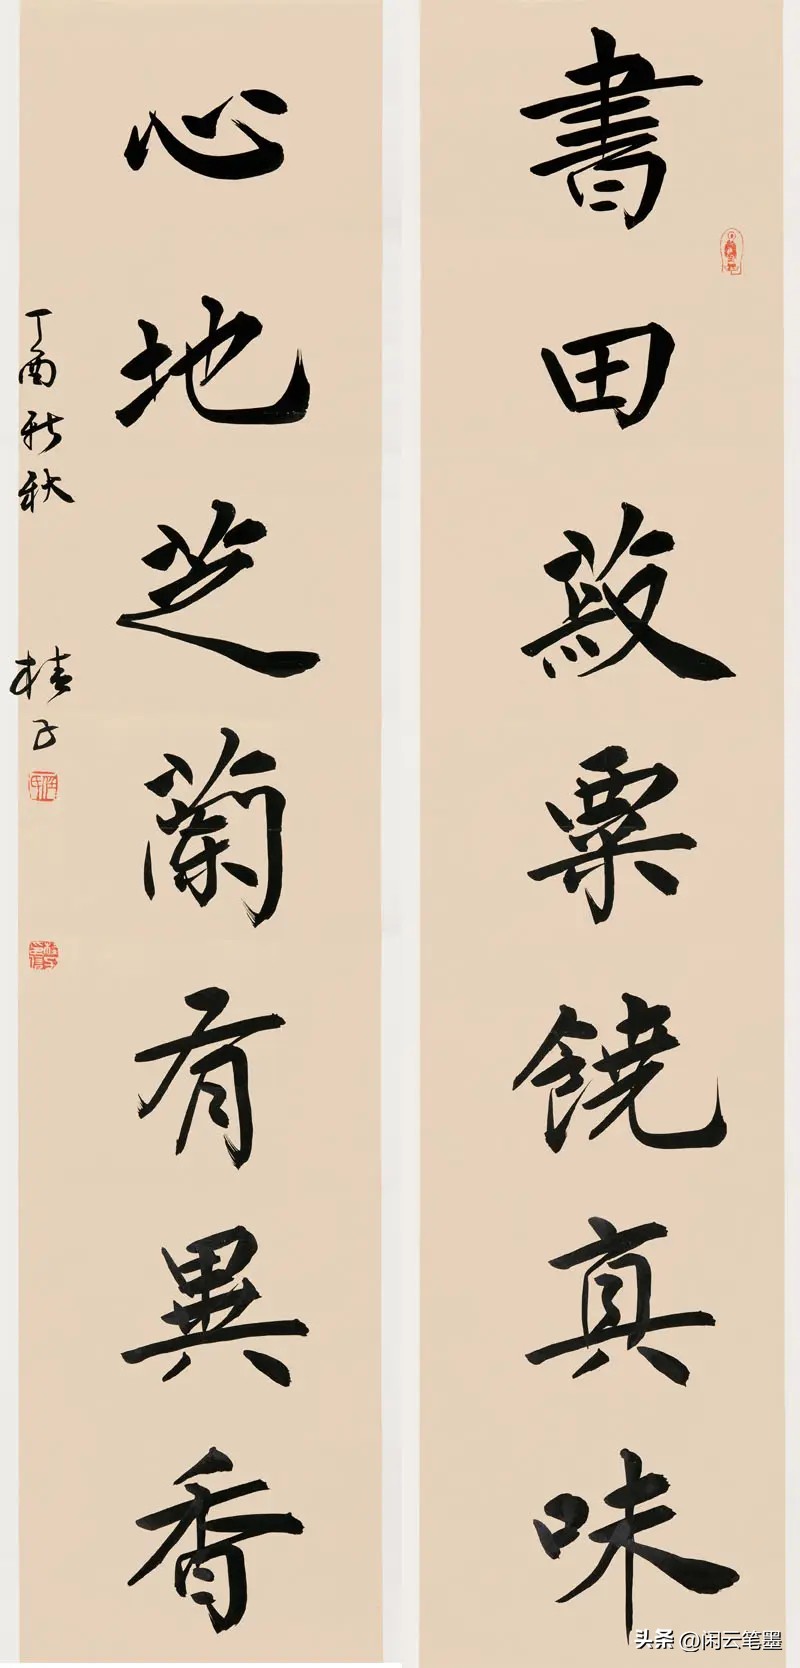 書田菽粟饒真味
心地芝蘭有異香
丁酉新秋
头条 @闲云笔墨